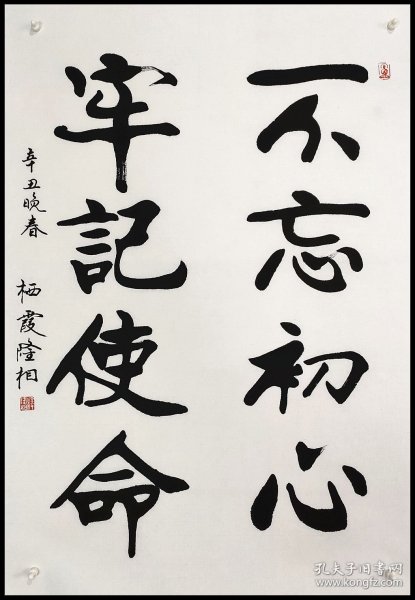 不忘初心
牢記使命
辛丑晚春
栖霞隆相
孔夫子旧书网
www.kongfz.com